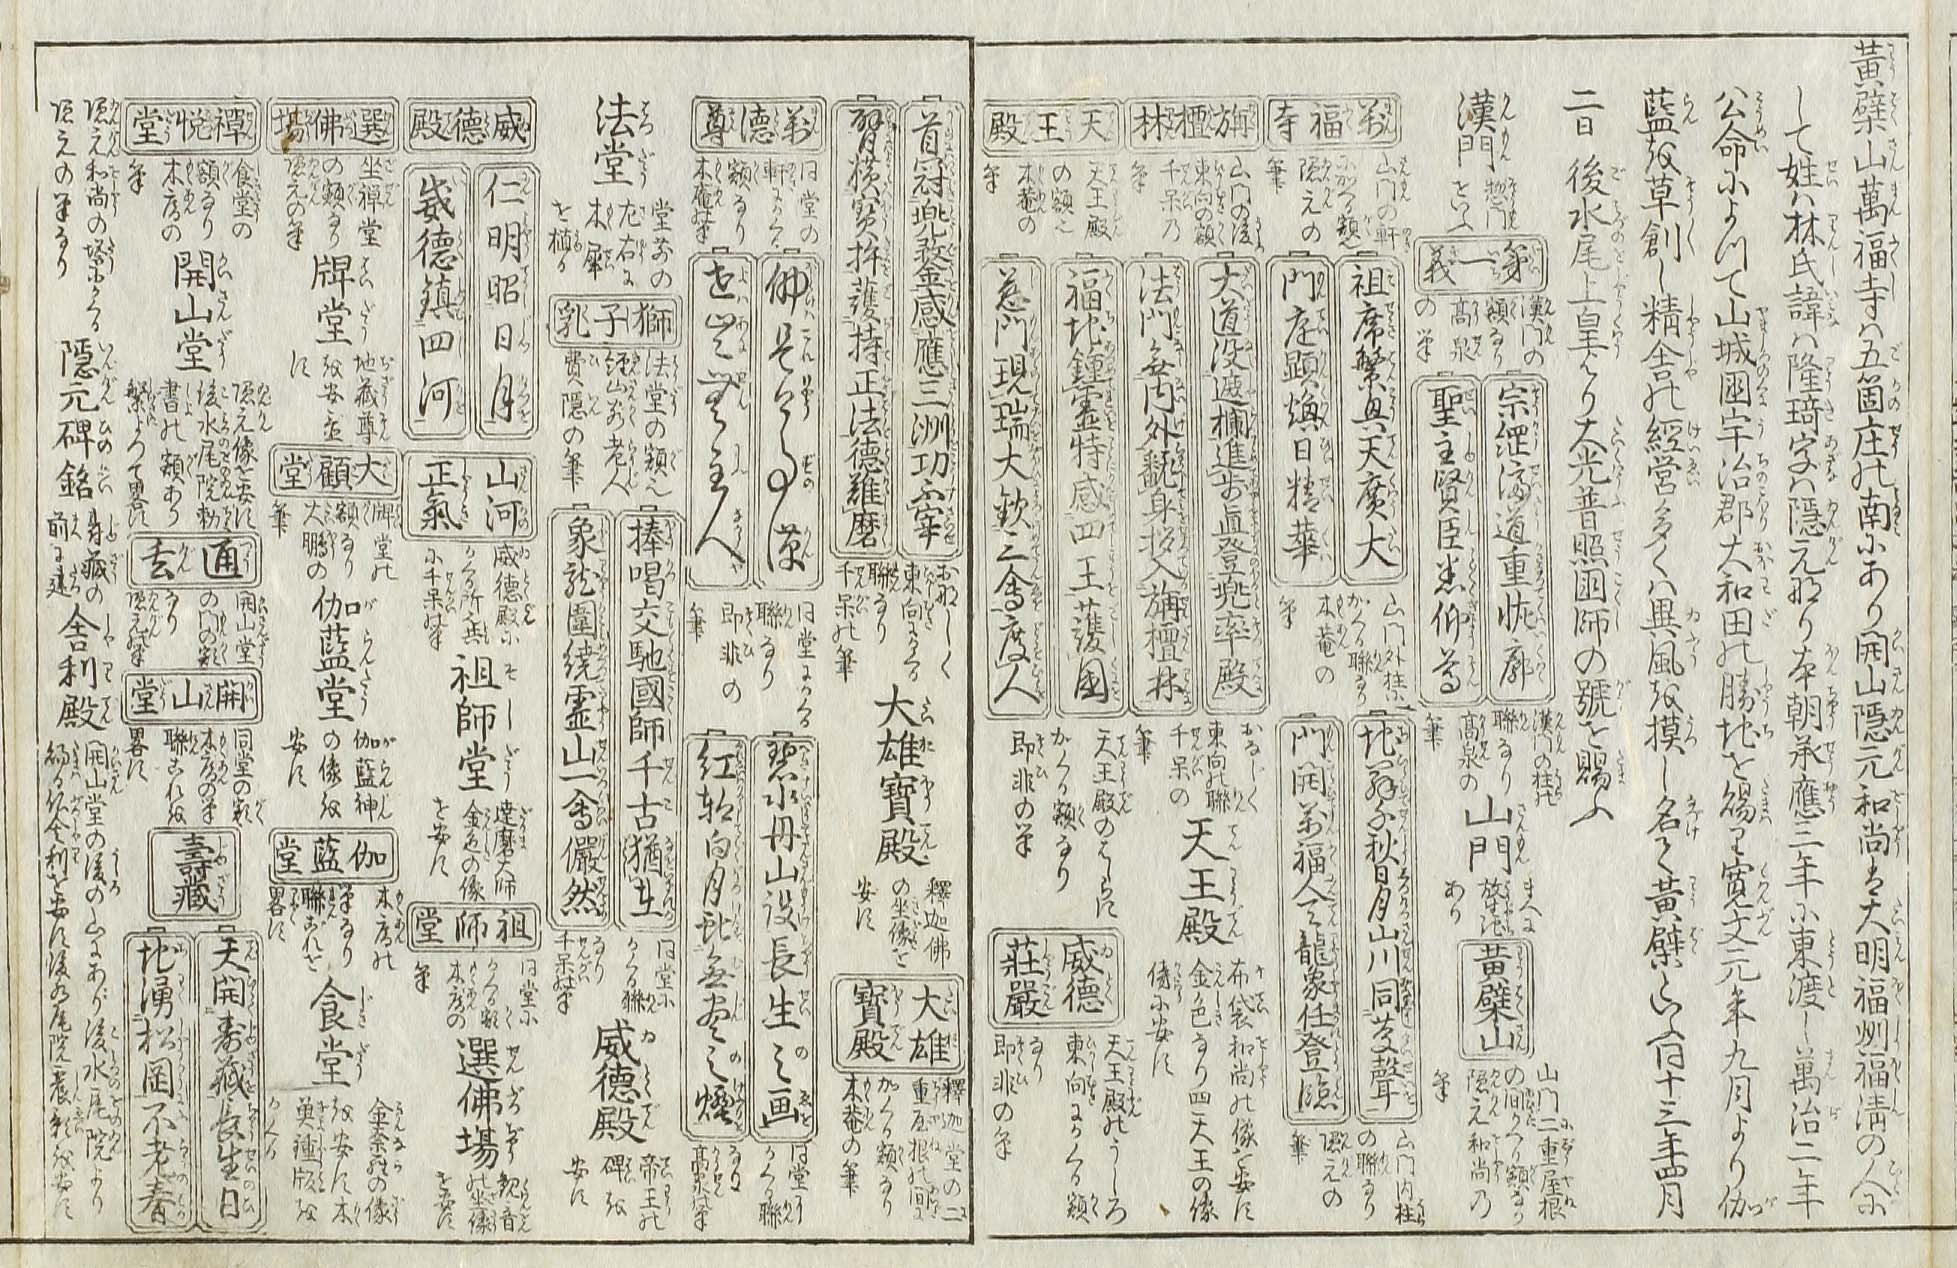 黄檗山萬福寺は五箇庄の南にあり開山隠元和尚は大明福州福清の人に
して姓は林氏諱は隆琦字は隠元なり本朝承應三年に東渡し萬治二年
公命によつて山城國宇治郡大和田の勝地を賜り寛文元年九月より伽
藍を草創し精舎の経営多くは異風を摸し名て黄檗といふ同十三年四月
二日後水尾上皇より大光普照國師の號を賜ふ
漢門
惣門をいふ
第一義
漢門の額なり高泉の筆
宗綱済道重恢廓
聖主賢臣悉仰尊
漢門の柱の聯なり高泉の筆
山門
黄檗山
山門二重屋根の間の額なり隠元和尚の筆
萬福寺
山門の軒にかくる額隠元の筆
祖席繁興天廣大
門庭顕煥日精華
山門外柱にかくる聯なり木菴の筆
門開萬福人天龍象任登臨
山門内柱の聯なり隠元の筆
旃檀林
山門の後東向の額千呆の筆
大道没遮欄進歩直登兜率殿
法門無内外翻身拶入旃檀林
おなじく東向の聯千呆の筆
天王殿
布袋和尚の像を安ず金色なり四天王の像傍に安ず
天王殿
天王殿の額木菴の筆
福地鍾靈特感四王護國
慈門現瑞大欽三會度人
天王殿の
かくる額なり即非の筆
威徳荘嚴
天王殿のうしろ東向にかくる額なり即非の筆
首冠兜鍪金感應三洲功
臂横寳杵護持正法德難磨
おなじく東向にかくる聯なり千呆の筆
大雄寶殿
釋迦佛の坐像を安ず
大雄寶殿
釋迦堂の二重屋根の間にかくる額なり木菴の筆
萬德尊
同堂の軒にかくる額なり木庵の筆
同堂にかくる聯なり即非の筆
碧水丹山設長生之画
紅輪白月
無尽之燈
同堂にかくる聯なり高泉筆
法堂
堂前の左右に木犀を植る
獅子乳
法堂の額也径山前老人費隠の筆
捧喝交馳國師千古猶在
象龍圍繞靈山一會儼然
同堂にかくる聯なり千呆の筆
威德殿
帝王の碑を安ず
威德殿
仁明昭日月
威德鎮四河
山河正氣
威徳殿にかくる所也共に千呆の筆
祖師堂
達磨大師金色の像を安ず
祖師堂
同堂にかくる額木庵の筆
選佛場
観音の坐像を安ず
選佛場
坐禅堂の額なり隠元の筆
牌堂
地蔵尊を安置す
大願堂
牌堂の額なり大鵬の筆
伽藍堂
伽藍神の像を安ず
伽藍堂
木庵の筆なり聯これを畧す
食堂
金奈羅の像を安ず
禪悦堂
食堂の額なり木庵の筆
開山堂
隠元像を安ず後水尾院勅書の額あり繁によつて畧す
通玄
開山堂の門の額なり隠元筆
開山堂
同堂の額木庵の筆聯これを畧す
壽藏
天開壽藏長生日
地湧松岡不老春
隠元和尚の塔にかくる隠元の筆なり
隠元碑銘
壽藏の前に建
舎利殿
開山堂の後の山にあり後水尾院より賜る佛舎利を安ず後水尾院